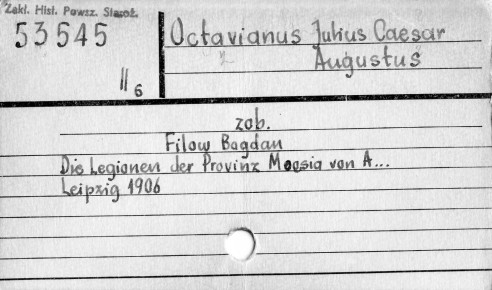 Zakł. Hist. Powsz. Staroż.
53545
II 6
Octavianus Julius Caesar
Augustus
zob.
Filow Bogdan
Die Legionen der Provinz Moesia von A...
Leipzig 1906